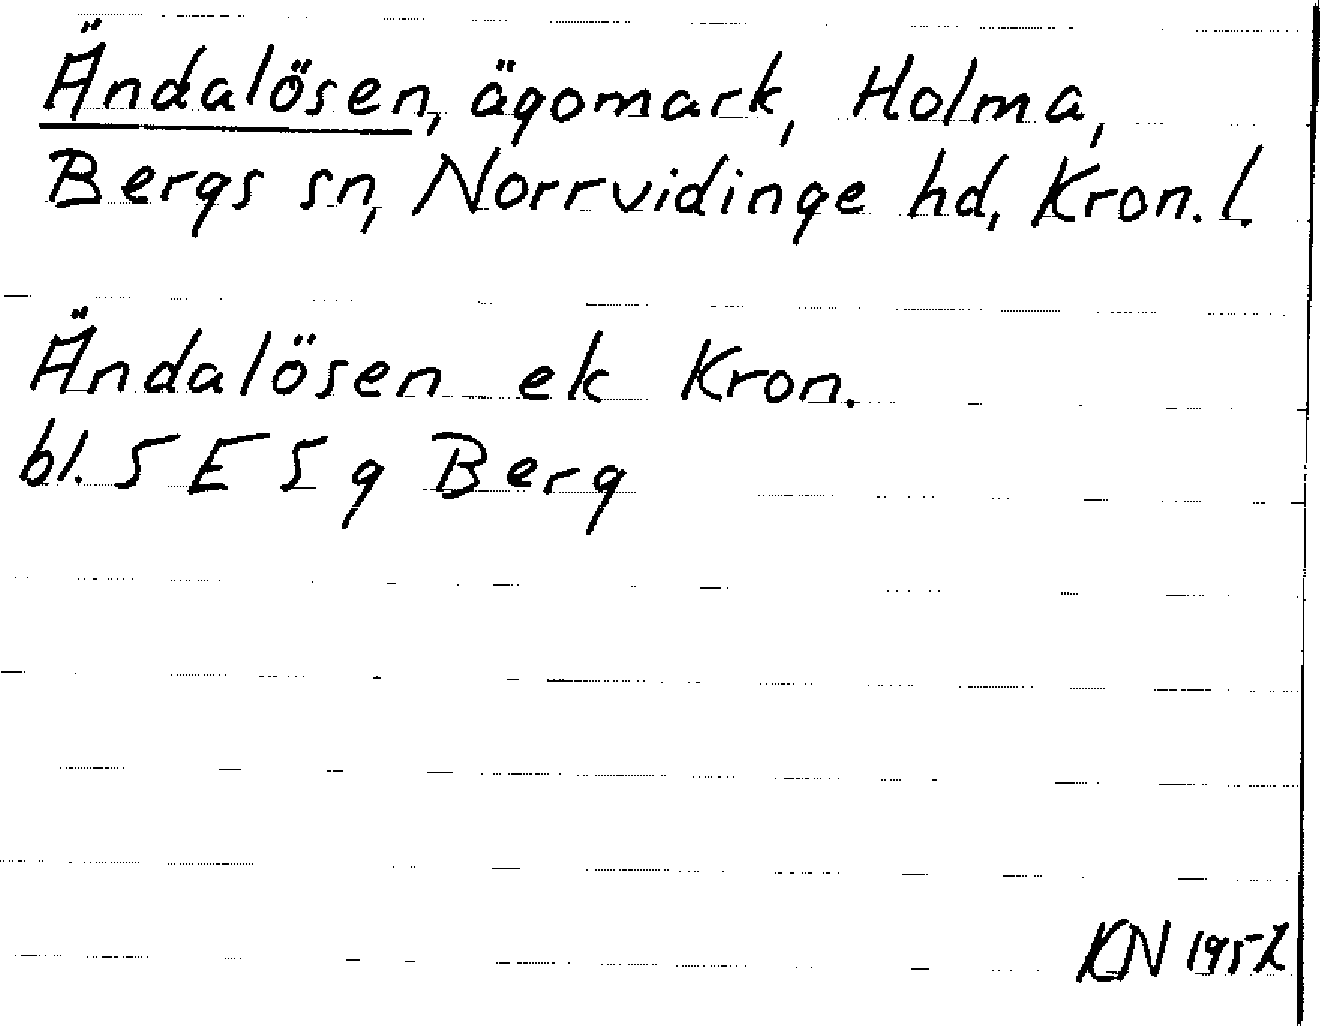 Ändalösen, ägomark, Holma,
Bergs sn, Norrvidinge hd, Kron. l.
Ändalösen ek Kron.
bl. 5 E 5 g Berg
KN 1952